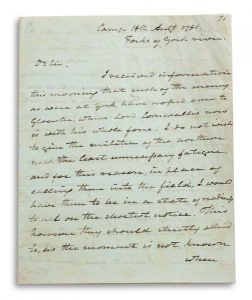 71
Camp 18th Augt 1781.
Forks of York river.
Dr Sir.
I received information
this morning that such of the enemy
as were at York have gone over to
Gloster, where Lord Cornwallis now
is with his whole force. I do not wish
to give the militia of the northern
neck the least unnecessary fatigue
and for this reason, in place of
calling them into the field, I would
have them to be in a state of readiness
to act on the shortest notice. This
however they should strictly attend
to, as the moment is not known
when